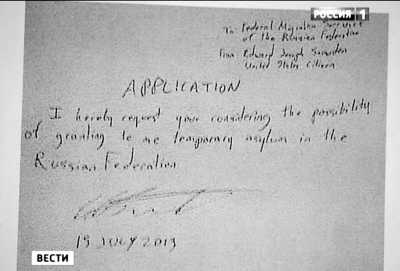 РОССИЯ 1
To Federal Migration Service
of the Russian Federation
From Edward Joseph Snowden
United States Citizen
APPLICATION
I hereby request your considering the possibility
of granting to me temporary asylum in the
Russian Federation
15 JULY 2013
ВЕСТИ